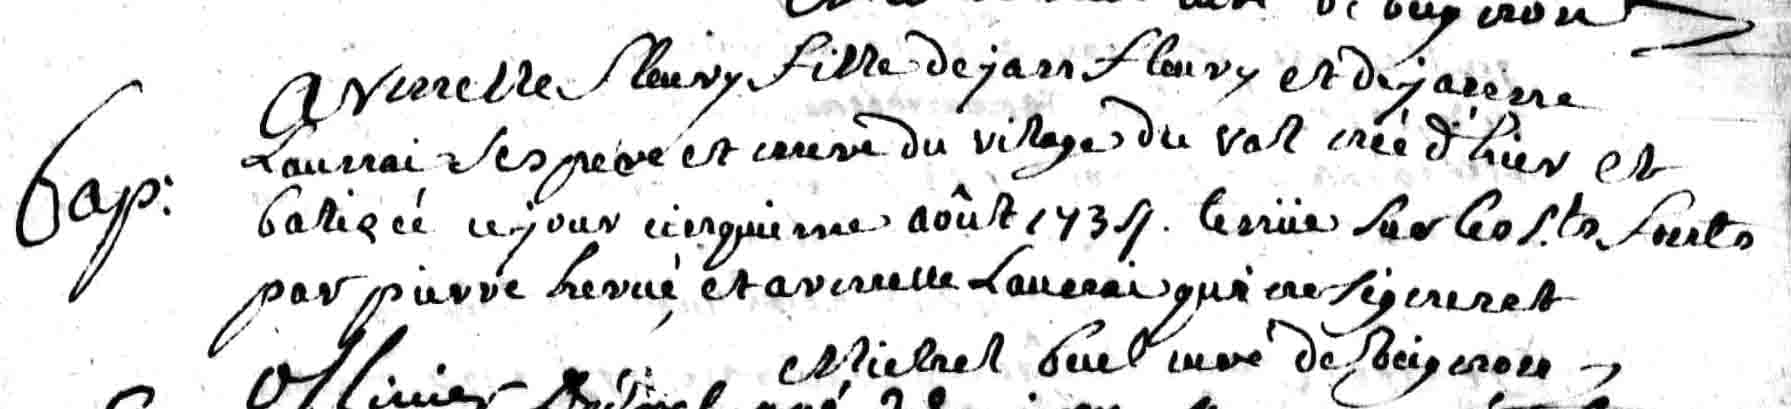 curé de beignon
Bap:
Armelle fleury fille de jan fleury et de janne
Launai ses pere et mere du vilage du val née d'hier et
batizée ce jour cinquieme août 1734. tenüe sur les s.ts fonts
par pierre hervé, et armelle Launai qui ne signent
Michel buel curé de beignon
Ollivier